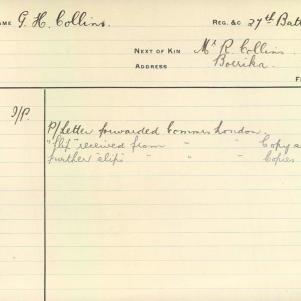 NAME G. H. Collins. REG. &C 27th Batt
NEXT OF KIN Mr R. Collins
ADDRESS Boorika.
I/P. P/Letter forwarded Commrs London.
"slip" received from " " Copy s
further "slip" " " " Copies